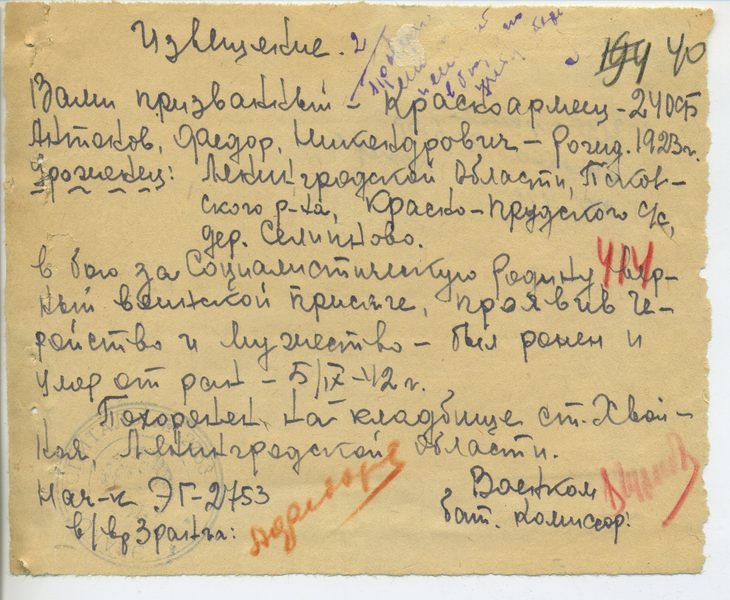 Извещение. 2
194 40
Вами призванный – Красноармеец – 24 ОСБ
Антонов, Фаедор, Никандрович – рожд. 1923 г.
Уроженец: Ленинградской Области, Псков-
ского р-на, Красно-Прудского с/с,
дер. Селиново.
в бою за Социалистическую родину, вер-
ный воинской присяге, проявив ге-
ройство и мужество – был ранен и
умер от ран – 5/IX-42 г.
Похоронен на кладбище ст. Хвой-
ная, Ленинградской Области.
Нач-к ЭГ-2753
в/вр 3 ранга:
Военком
бат. комиссар: